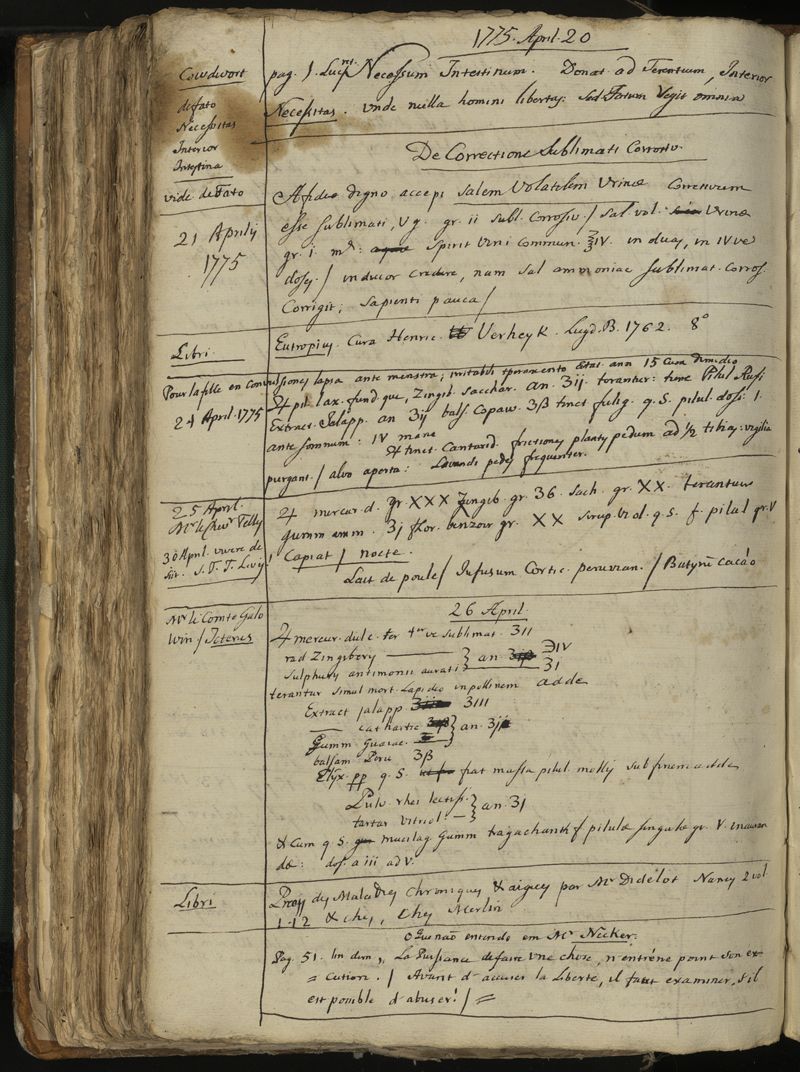 1775. April. 20
Cowdwort
de fato
Necessitas
Interior
Intestina
vide de Fato
pag. 1. Necessum Intestinum. Donat. ad Terentium, Interior
Necessitas. unde nulla homini libertas: Sed Fatum Regit omnia
De Correctione Sublimati Corrosiv.
21 Aprilij
1775
A fide digno accepi Salem Volatilem Urinæ Correctivum
esse sublimati, V g. gr. ii subl. Corrosiv. / Sal. vol. Urinæ
gr. i. spirit Vini Commun. ℥IV. in duas, in IV ve
doses. / inducor credere, nam Sal ammoniac sublimat. Corros.
Corrigit; sapienti pauca /
Libri
Eutropius. Cura Henric. Verheyk. Lugd. B. 1762. 8°
Pour la fille en convulsiones lapsa ante menstrua, irritabili temperamento Etat. ann 15 Cum dimidio
24 April. 1775
pil. lax. fund que, Zingib. Sacchar. an. 3ij. terantur: tunc Pilul Rufi
Extract. Jalapp. an 3ij bals Copaw. 3ß tinct fulig. q. S. pilul. dosi: 1.
ante somnum: IV mane
tinct. Cantarid. frictiones plantis pedum ad ½ tibias: vigilia
purgant. / alvo aperta: Lavandi pedes frequenter.
25 April.
Mr. le Chevr Velly
30 April. vivere de
siit. S. T. T. Levis
mercur. d. gr XXX Zingib. gr. 36. Sach. gr. XX. terantur
gumm amm. 3j flor. benzoin gr. XX sirup. Viol. q. S. f. pilul gr. V
Capiat 1 nocte.
Lait de poule / Infusum Cortic. peruvian. / Butyrũ Cacáo
26 April
Mr le Comte Galo
Win / Icterus
mercur. dulc. ter 4er ve sublimat. 3II
rad Zingibery an ℈IV
Sulphury antimonii aurati 3I
terantur simul mort. Lapideo in pollinem adde
Extract jalapp. 3III
cathartic an. 3j
Gumm. Guaiac.
balsam Peru 3ß
Elix. pp q. S. fiat massa pilul mollis sub finem adde
Pulv. rhei lectiss. an. 3I
tartar Vitriol.
& Cum q. S. mucilag. Gumm tragachanth f pilulæ singulæ gr. V. inauran
dæ: dos. a iii ad V.
Libri
Precis des Maladies Chroniques & aigues par Mr Didelot Nancy 2 vol
1-12 & chez, Chez Merlin
o que não entendo em Mr Necker.
Pag. 51. lin dern, La Puissance de faire une chose, n'entréne point son ex
= cution. / Avant d'accuser la Liberté, il faut examiner, s'il
est possible d'abuser! / =